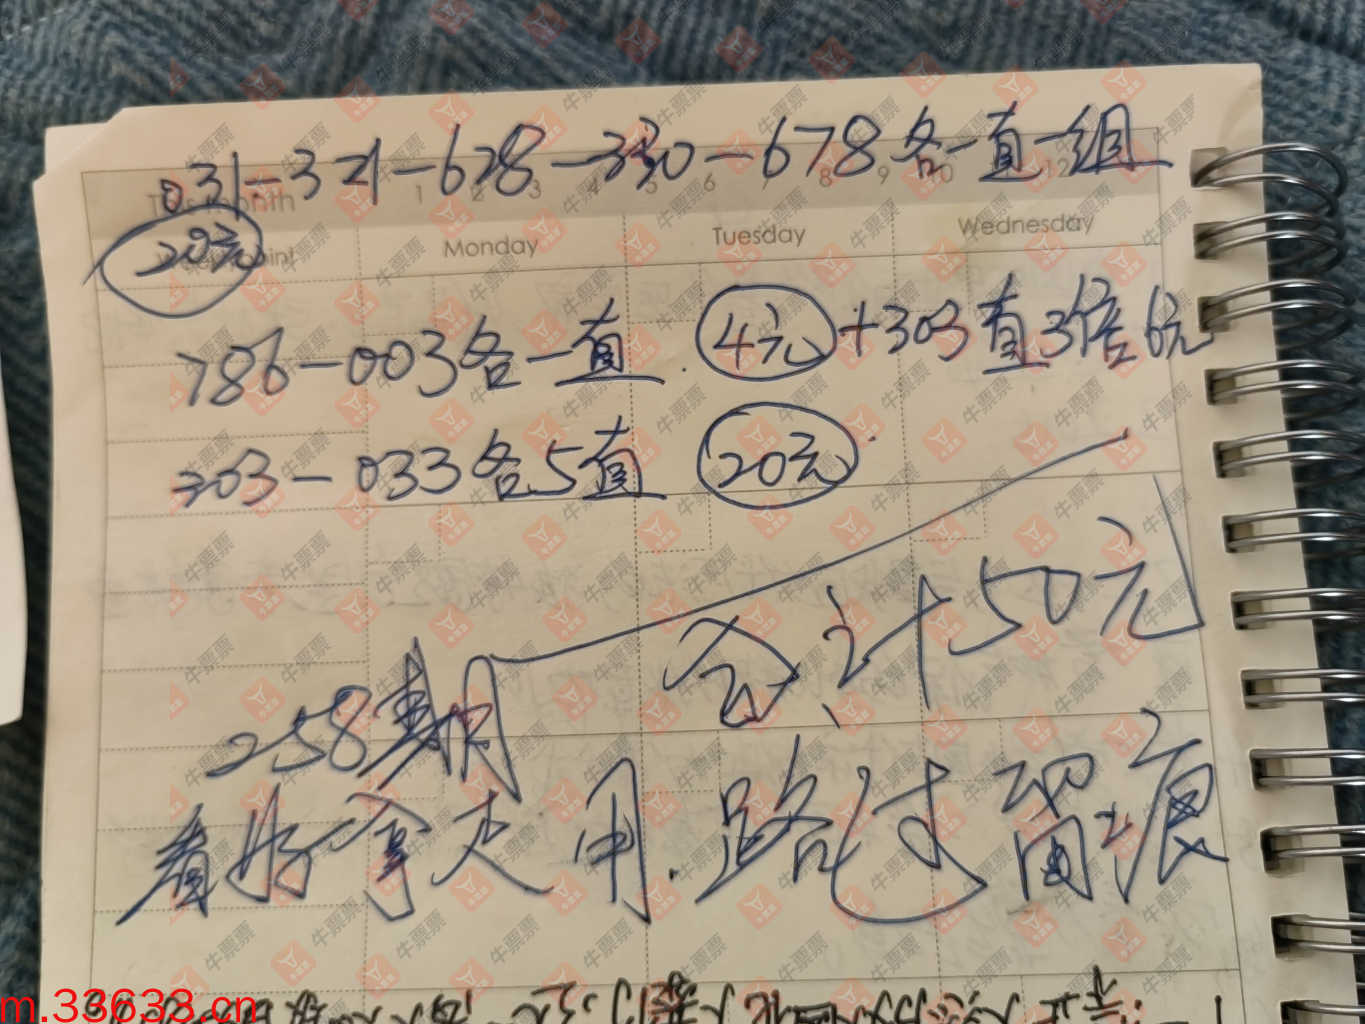 031-321-628-330-678各一直一组
This month 1 2 3 4 5 6 7 8 9 10 12
20元
Monday Tuesday Wednesday
786-003各一直 4元+303直3倍6元
303-033各5直 20元
合计50元
258期
看好拿走用.路过留痕
m.33633.cn
牛票票